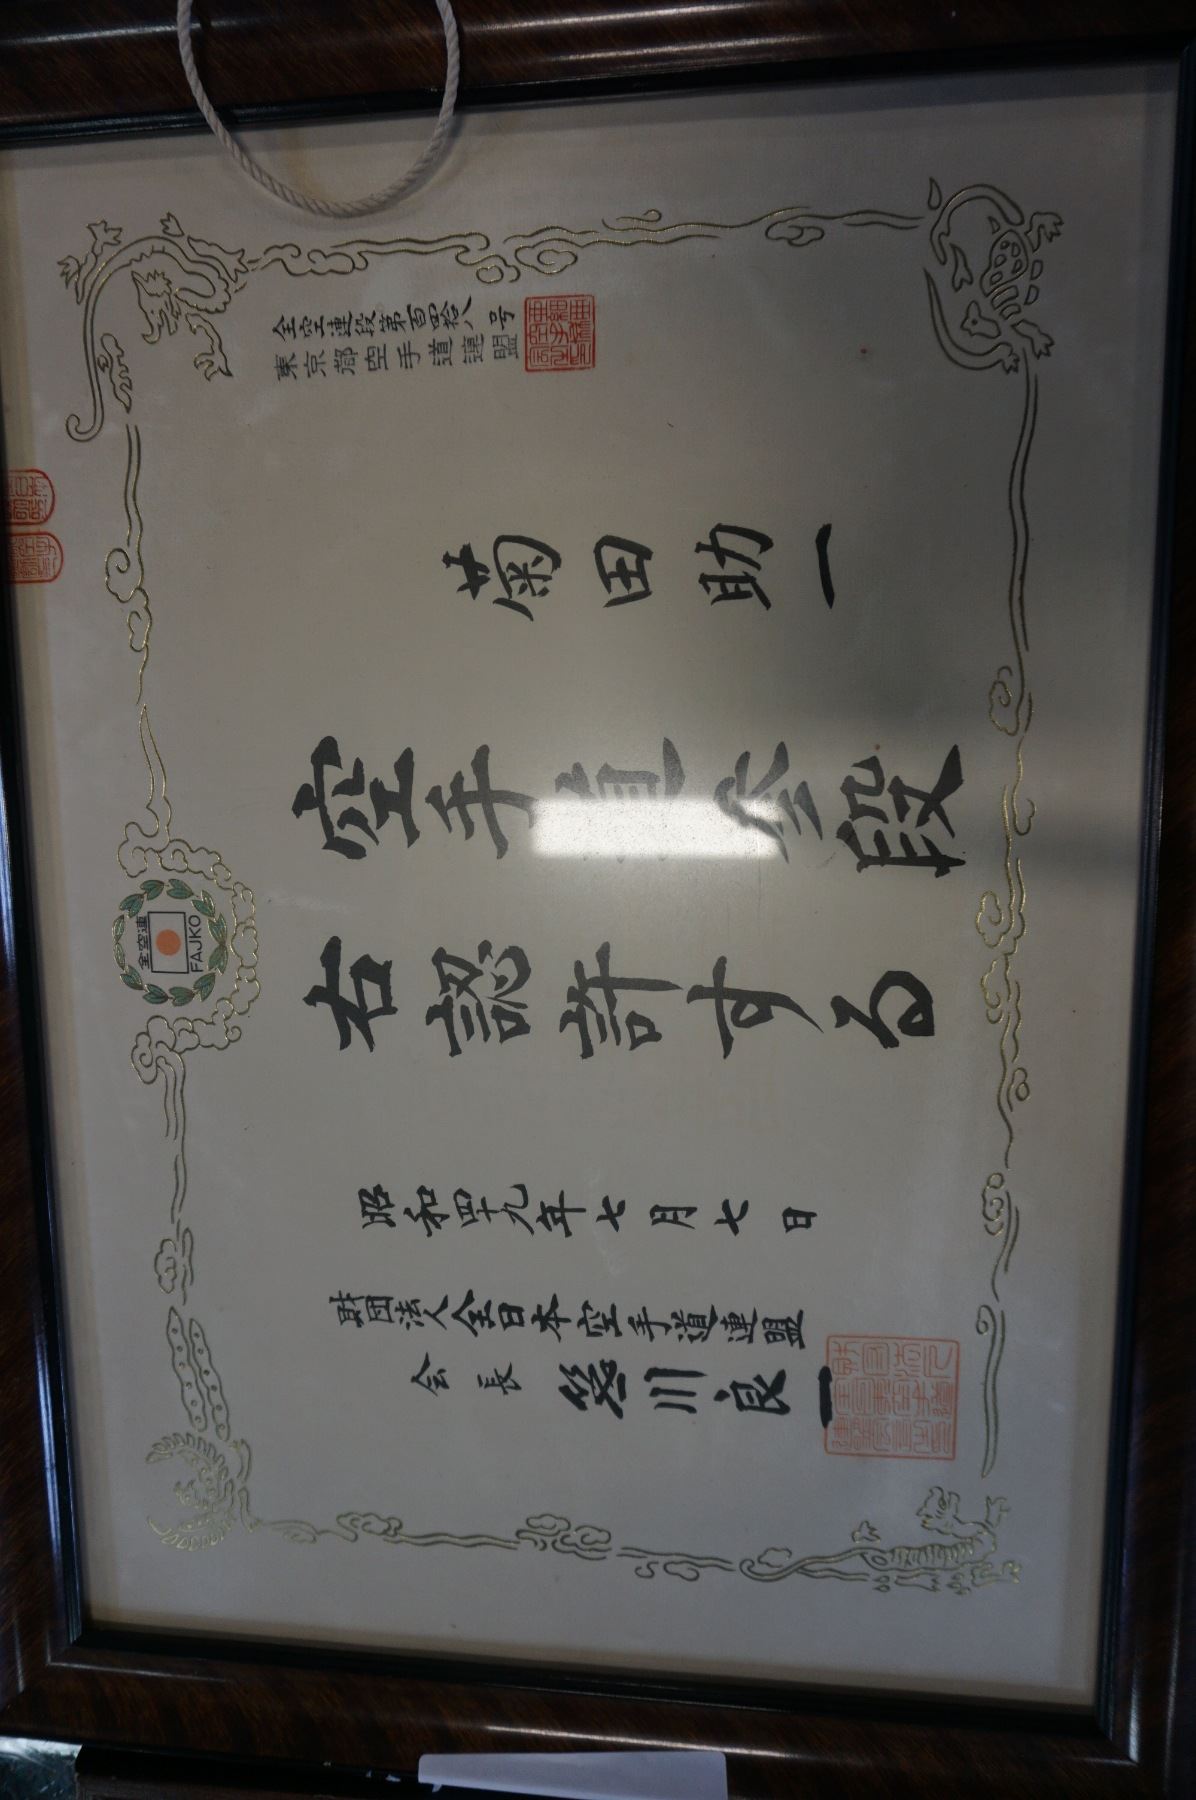 全空連
FAJKO
全空連段第百四拾八号
東京都空手道連盟
菊田助一
空手道参段
右認許する
昭和四十九年七月七日
財団法人全日本空手道連盟
会長 笹川良一